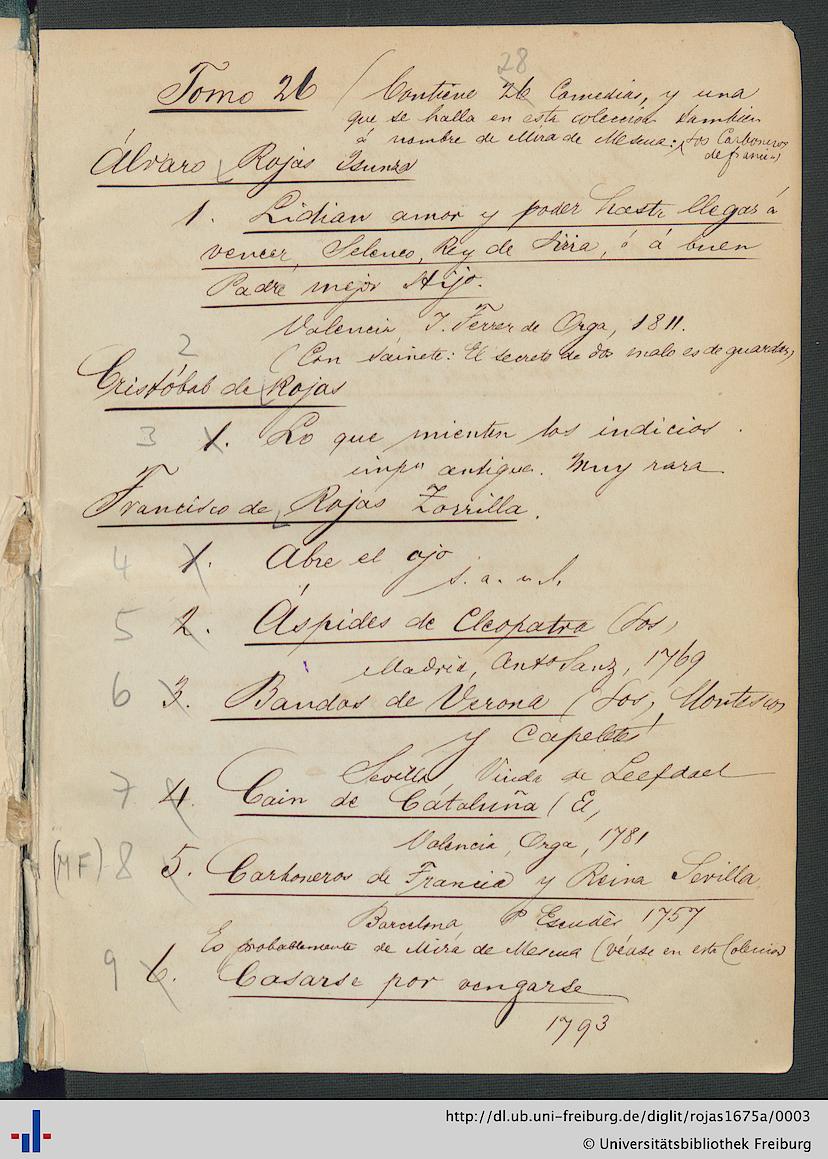 28
Tomo 26 (Contiene 26 Comedias, y una
que se halla en esta coleccion tambien
á nombre de Mira de Mescua: (Los Carboneros
de Francia)
Álvaro Rojas
1. Lidian amor y poder hasta llegar á
vencer, Seleuco, Rey de Siria, ó á buen
Padre mejor Hijo.
Valencia J. Ferrer de Orga, 1811.
2 (Con sainete: El secreto de dos malo es de guardar)
Cristóbal de Rojas
3 1. Lo que mienten los indicios.
impn antigua. Muy rara.
Francisco de Rojas Zorrilla.
4 1. Abre el ojo
s. a. n. l.
5 2. Áspides de Cleopatra (Los)
Madrid, Anto Sanz, 1769
6 3. Bandos de Verona (Los, Montescos
y Capeletes
Sevilla Viuda de Leefdael
7 4. Cain de Cataluña (El,
Valencia, Orga, 1781
(MF) 8 5. Carboneros de Francia y Reina Sevilla
Barcelona, P. Escudèr 1757
Es probablemente de Mira de Mescua (véase en esta Coleccion)
9 6. Casarse por vengarse
1793
http://dl.ub.uni-freiburg.de/diglit/rojas1675a/0003
© Universitätsbibliothek Freiburg